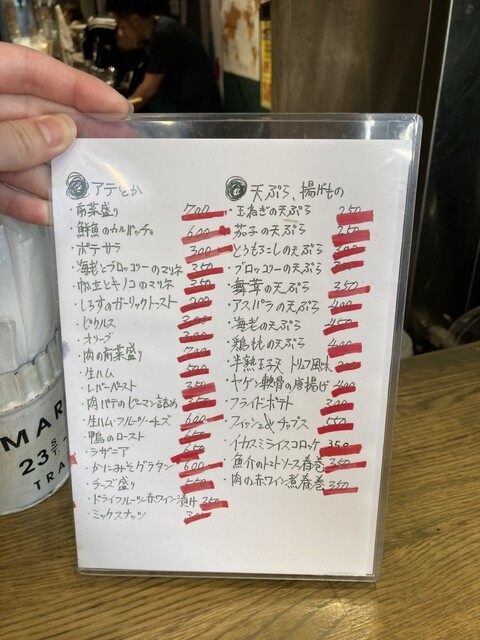 アテとか
・前菜盛り 700
・鮮魚のカルパッチョ 600
・ポテサラ 300
・海老とブロッコリーのマリネ 350
・帆立とキノコのマリネ 350
・しらすのガーリックトースト
・ピクルス
・オリーブ 300
・肉の前菜盛り 700
・生ハム 500
・レバーペースト 350
・肉パテのピーマン詰め 350
・生ハム・フルーツ・チーズ 600
・鴨のロースト 650
・ラザニア 650
・かにみそグラタン 600
・チーズ盛り 550
・ドライフルーツの赤ワイン漬け 350
・ミックスナッツ
天ぷら、揚げもの
・玉ねぎの天ぷら 250
・茄子の天ぷら 250
・とうもろこしの天ぷら
・ブロッコリーの天ぷら
・舞茸の天ぷら 350
・アスパラの天ぷら 400
・海老の天ぷら 450
・鶏ももの天ぷら 400
・半熟玉子天 トリュフ風味
・ヤゲン軟骨の唐揚げ 400
・フライドポテト 300
・フィッシュ&チップス 550
・イカスミライスコロッケ 350
・魚介のトマトソース春巻 350
・肉の赤ワイン煮春巻 350
MAR
23 S.T.
TRA